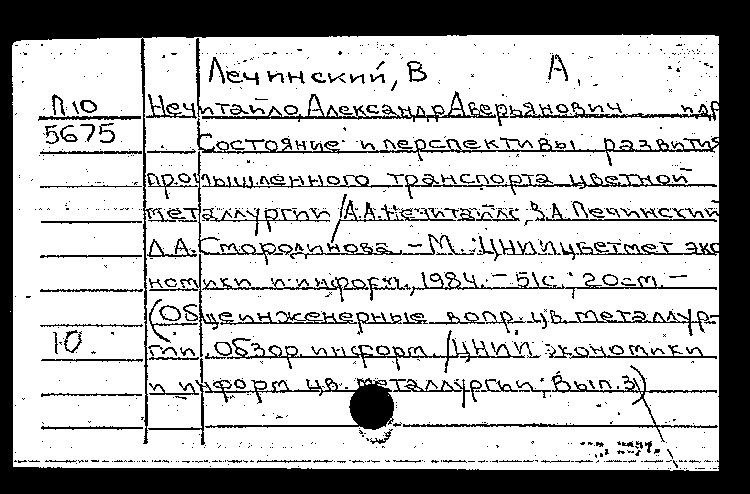 Лечинский, В А.
П10 Нечитайло, Александр Аверьянович и др
5675 Состояние и перспективы развития
промышленного транспорта цветной
металлургии / А.А. Нечитайло, В.А. Лечинский
Л.А. Смородинова. – М.: ЦНИИцветмет эко
номики и информ., 1984. – 51с.; 20см. –
(Общеинженерные вопр. цв. металлур-
10. гии. Обзор. информ. / ЦНИИ экономики
и информ цв. металлургии; Вып. 3)